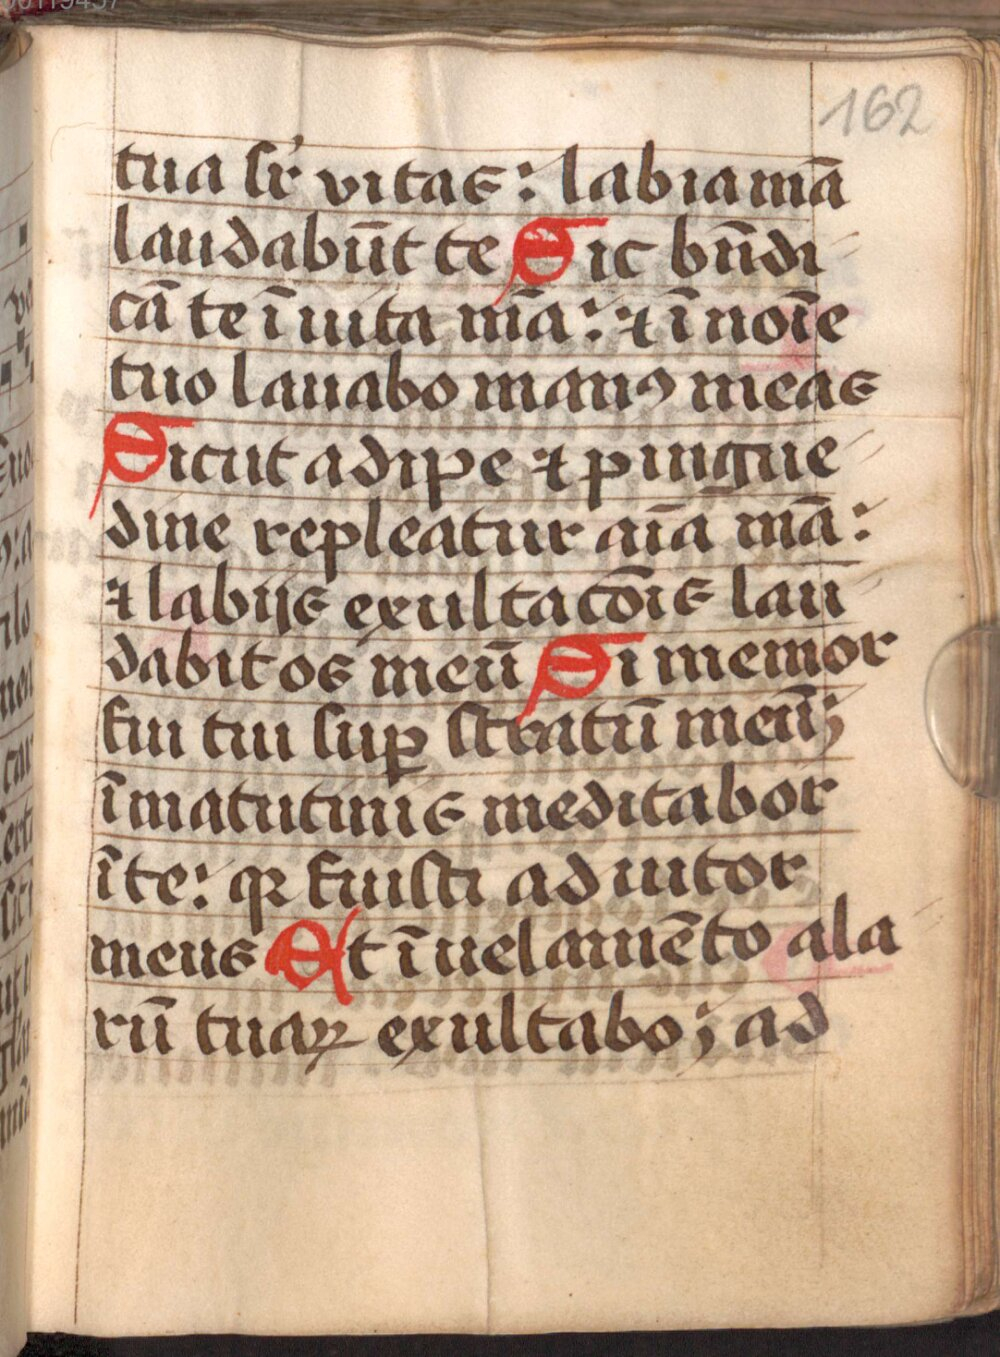 162
tua sr̄ vitas: labia mā
laudabūt te Sic bn̄di
cā te ī uita mā: ⁊ ī noīe
tuo lauabo manꝰ meas
Sicut adipe ⁊ pingue
dine repleatur aīa mā:
⁊ labijs exultacōīs lau
dabit os meū Si memor
fui tui suꝑ stratū meū;
ī matutinis meditabor
ī te: qꝛ fuisti adiutor
meus Et ī uelamēto ala
rū tuaꝝ exultabo; ad